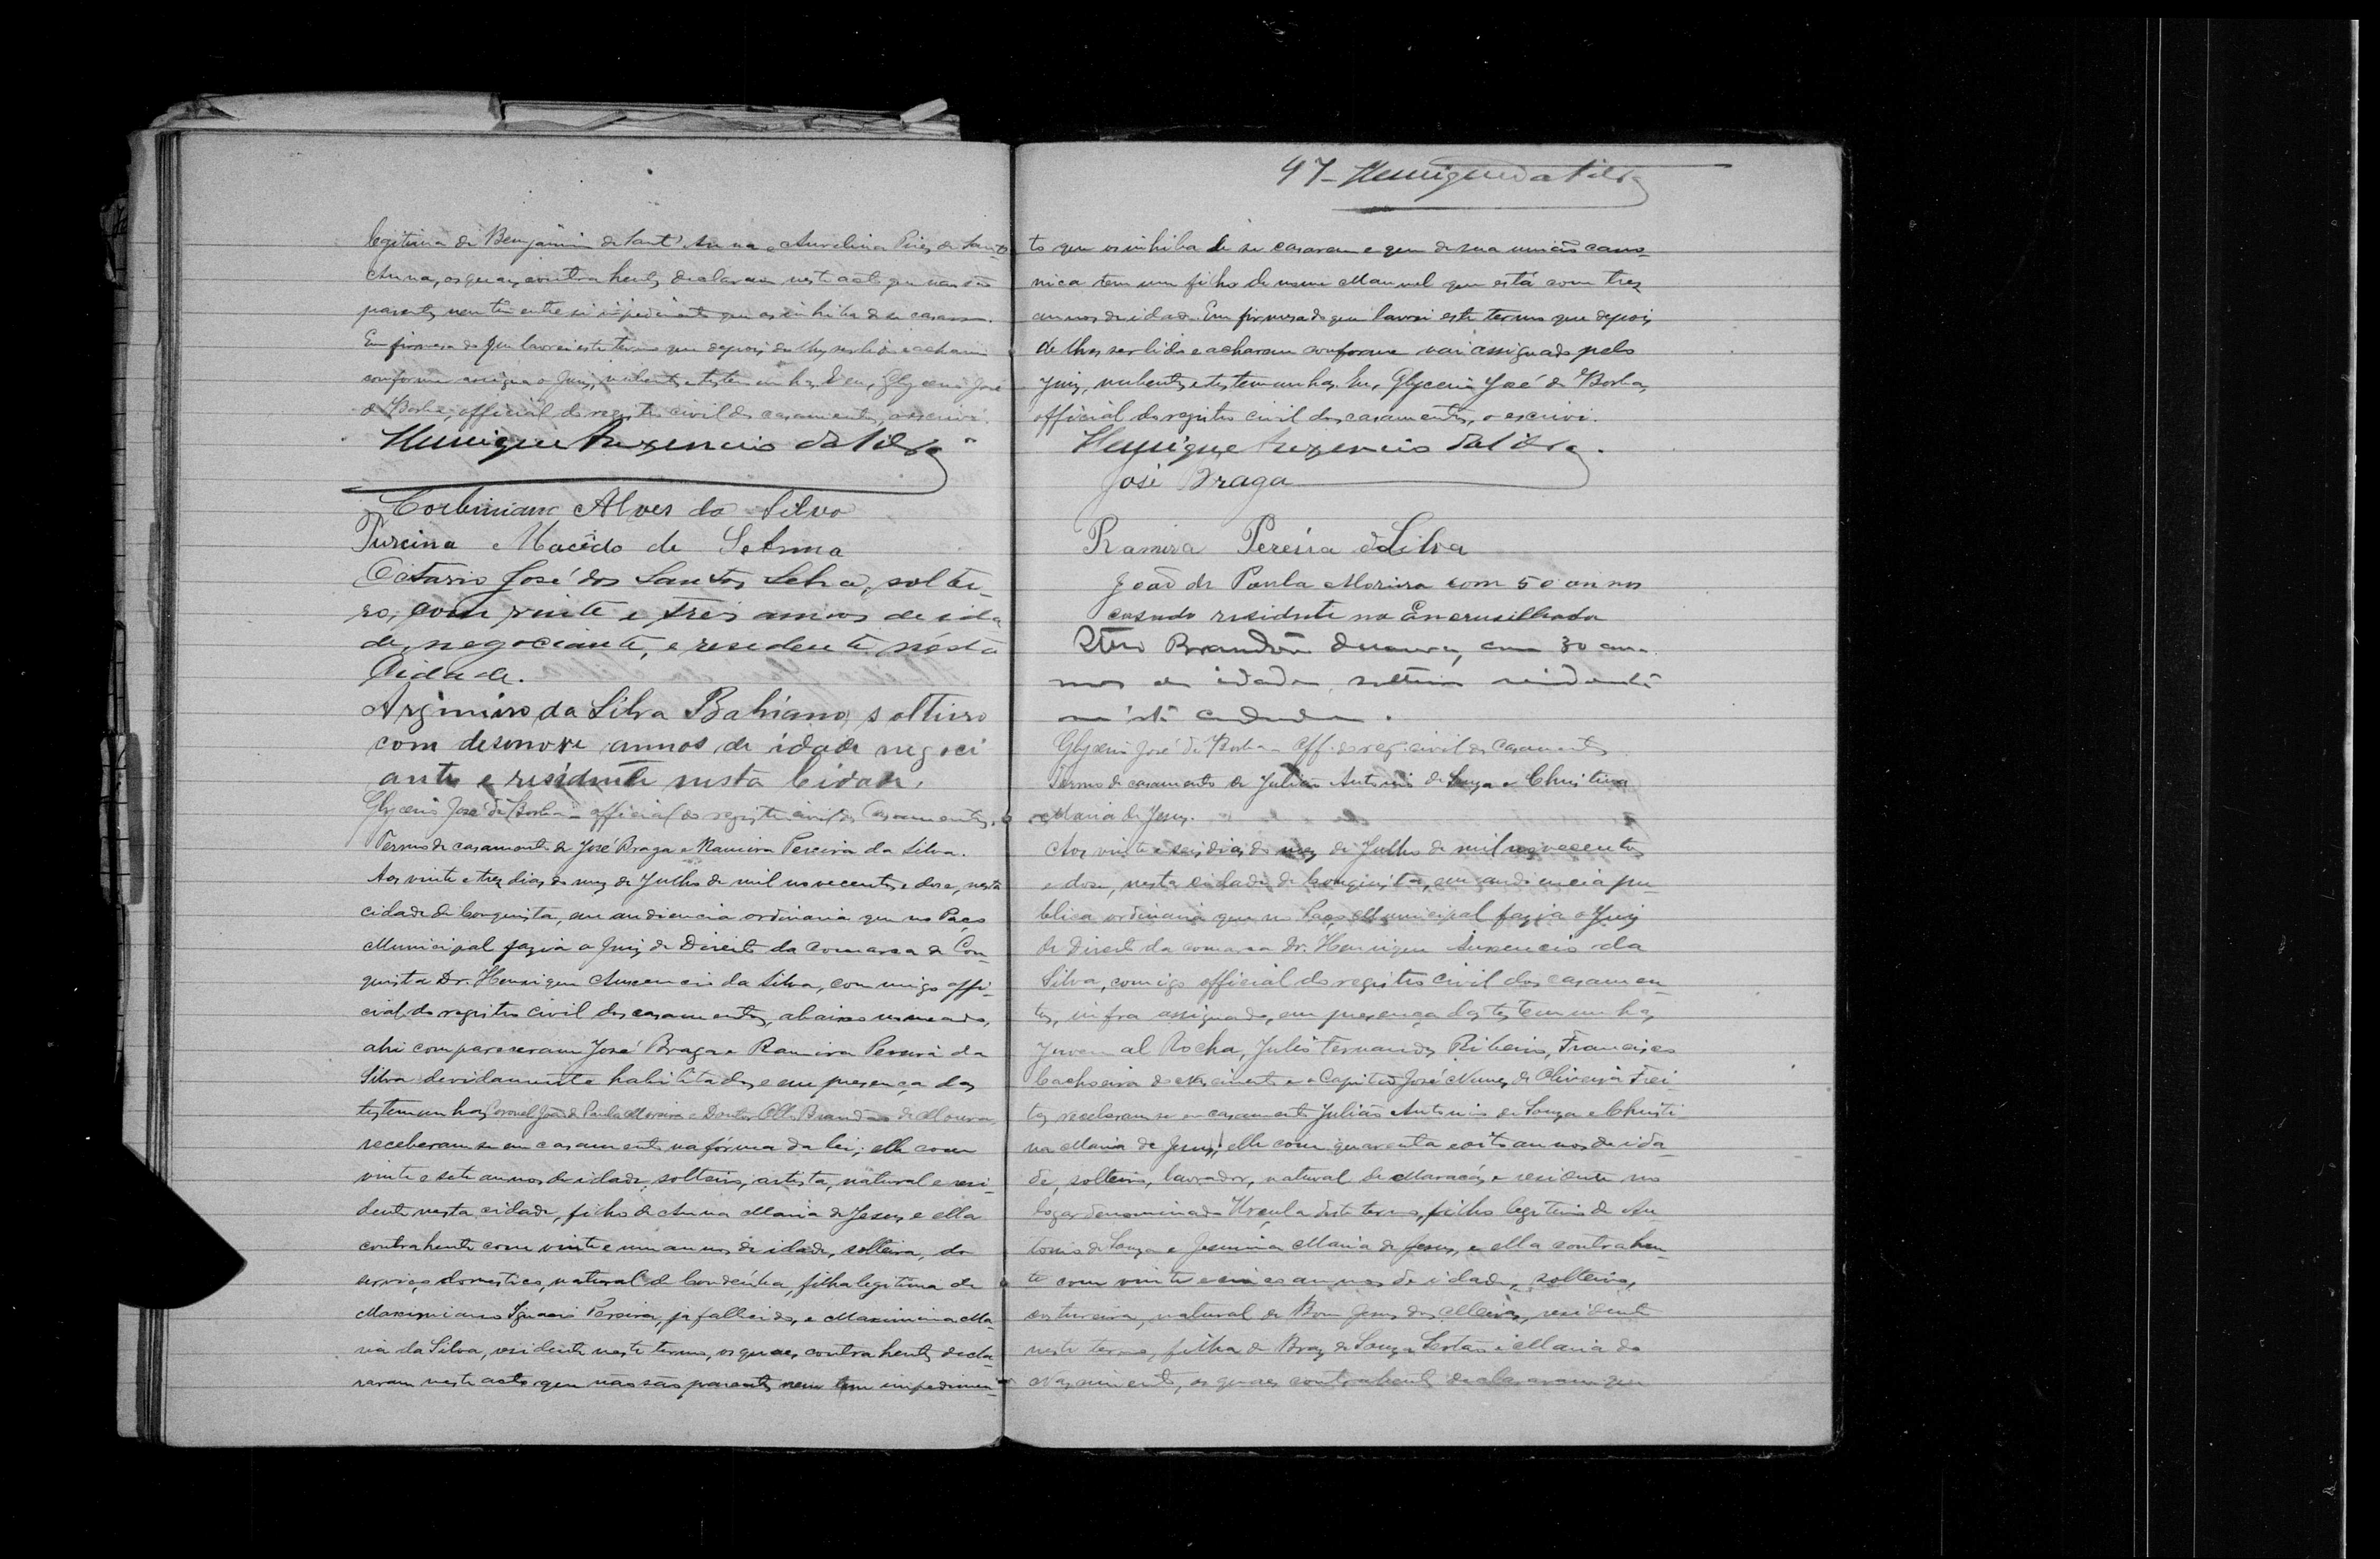 legitima de Benjamin de Sant'Anna e Aurelina Pires de Santo
Anna, os quaes contrahentes declaram neste acto que não são
parentes nem têm entre si impedimento que os inhiba de se casarem.
Em firmesa do que lavrei este termo que depois de lhes ser lido e acharem
conforme assigna o Juiz, nubentes e testemunhas. Eu, Glycerio José
de Borba, official do registro civil dos casamentos, o escrivi.
Henrique Auxencio da Silva
Corbiniano Alves da Silva
Turcina Macêdo de SetAnna
Octavio José dos Santos Silva, soltei-
ro, com vinte e três annos de ida
de, negociante, e residente nésta
Cidade.
Argimiro da Silva Bahiano, soltiro
com desenove annos de idade negoci
ante e residente nesta Cidade.
Glycerio José de Borba - official do registro civil dos Casamentos.
Termo de casamento de José Braga e Ramira Pereira da Silva.
Aos vinte e tres dias do mez de Julho de mil novecentos e dose, nesta
cidade de Conquista, em audiencia ordinaria que no Paço
Municipal fazia o Juiz de Direito da Comarca de Con-
quista Dr. Henrique Auxencio da Silva, commigo offi-
cial do registro civil dos casamentos, abaixo nomeado,
ahi compareceram José Braga e Ramira Pereira da
Silva devidamente habilitados e em presença das
testemunhas Coronel João de Paula Moreira e Doutor Brandão de Moura,
receberam-se em casamento na fórma da lei; elle com
vinte e sete annos de idade, solteiro, artista, natural e resi-
dente nesta cidade, filho de Anna Maria de Jesus, e ella
contrahente com vinte e um annos de idade, solteira, do
serviço domestico, natural de Condeúba, filha legitima de
Maximiano Ignacio Pereira, já fallecido, e Maximina Ma-
ria da Silva, residente neste termo, os quaes contrahentes decla-
raram neste acto que não são parentes nem tem impedimen-
47 - Henrique da Silva
to que os inhiba de se casarem e que de sua união cano-
nica tem um filho de nome Manuel que está com tres
annos de idade. Em firmesa do que lavrei este termo que depois
de lhes ser lido e acharam conforme vai assignado pelo
Juiz, nubentes e testemunhas. Eu, Glycerio José de Borba,
official do registro civil dos casamentos, o escrivi.
Henrique Auxencio da Silva.
José Braga
Ramira Pereira da Silva
João de Paula Moreira com 50 annos
casado residente na Encrusilhada
Brandão de Moura, com 30 an-
nos de idade, solteiro residente
n'esta cidade.
Glycerio José de Borba - Off. do reg. civil dos Casamentos
Termo de casamento de Julião Antonio de Souza e Christina
Maria de Jesus.
Aos vinte e seis dias do mez de Julho de mil novecentos
e dose, nesta cidade de Conquista, em audiencia pu-
blica ordinaria que no Paço Municipal fazia o Juiz
de Direito da comarca Dr. Henrique Auxencio da
Silva, comigo official do registro civil dos casamen-
tos, infra assignado, em presença das testemunhas
Juvenal Rocha, Julio Fernandes Ribeiro, Francisco
Cachoeira do Nascimento e o Capitão José Nunes de Oliveira Frei
tas receberam-se em casamento Julião Antonio de Souza e Christi
na Maria de Jesus; elle com quarenta e oito annos de ida-
de, solteiro, lavrador, natural de Maracás, e residente no
logar denominado Urçula deste termo, filho legitimo de An-
tonio de Souza e Jesuina Maria de Jesus, e ella contrahen-
te com vinte e cinco annos de idade, solteira,
costureira, natural de Bom Jesus dos Meiras, residente
neste termo, filha de Braz de Souza Sertão e Maria do
Nascimento, os quaes contrahentes declararam que